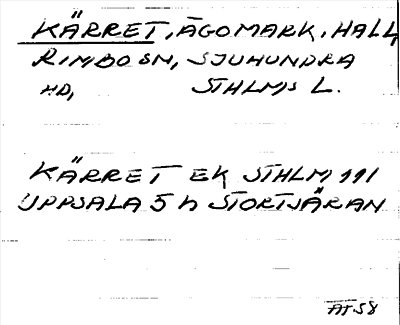 KÄRRET, ÄGOMARK, HALL,
RIMBO SN, SJUHUNDRA
HD, STHLMS L.
KÄRRET EK STHLM 111
UPPSALA 5 h STORTJÄRAN
ÄT 58